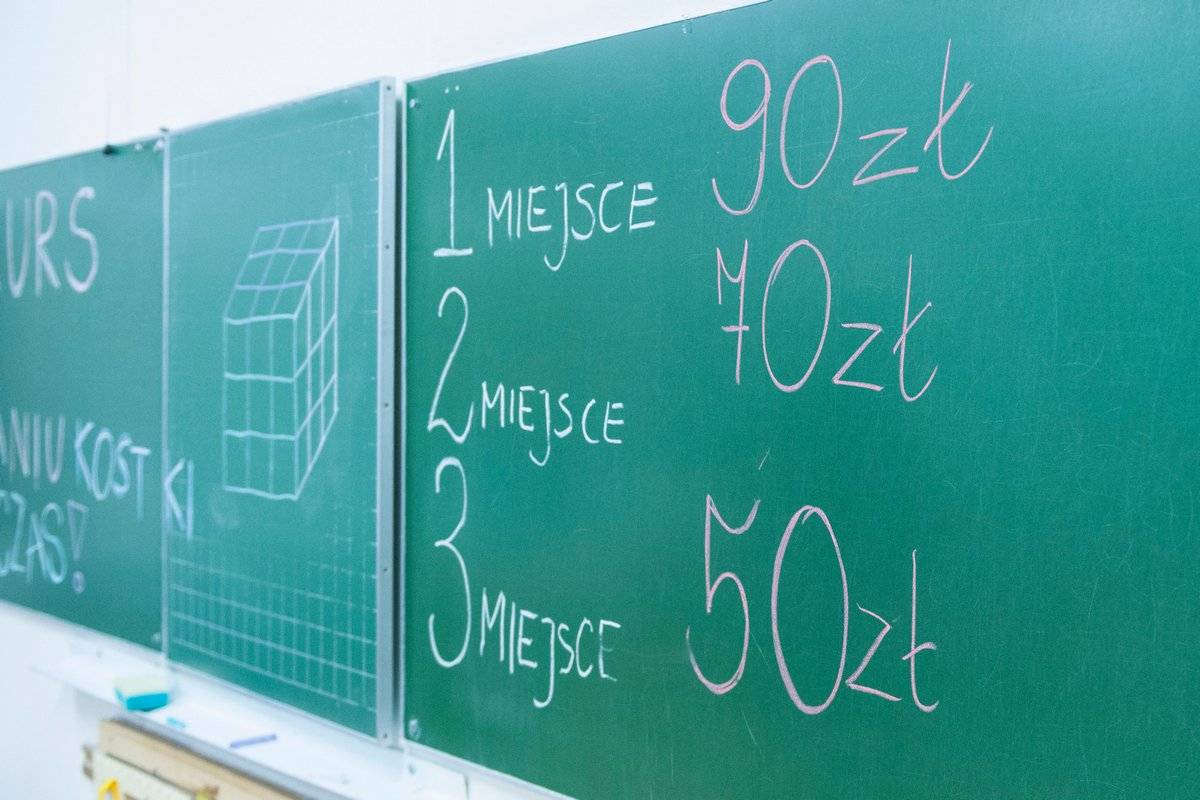 URS
ANIU KOSTKI
CZAS!
1 MIEJSCE 90 zł
2 MIEJSCE 70 zł
3 MIEJSCE 50 zł